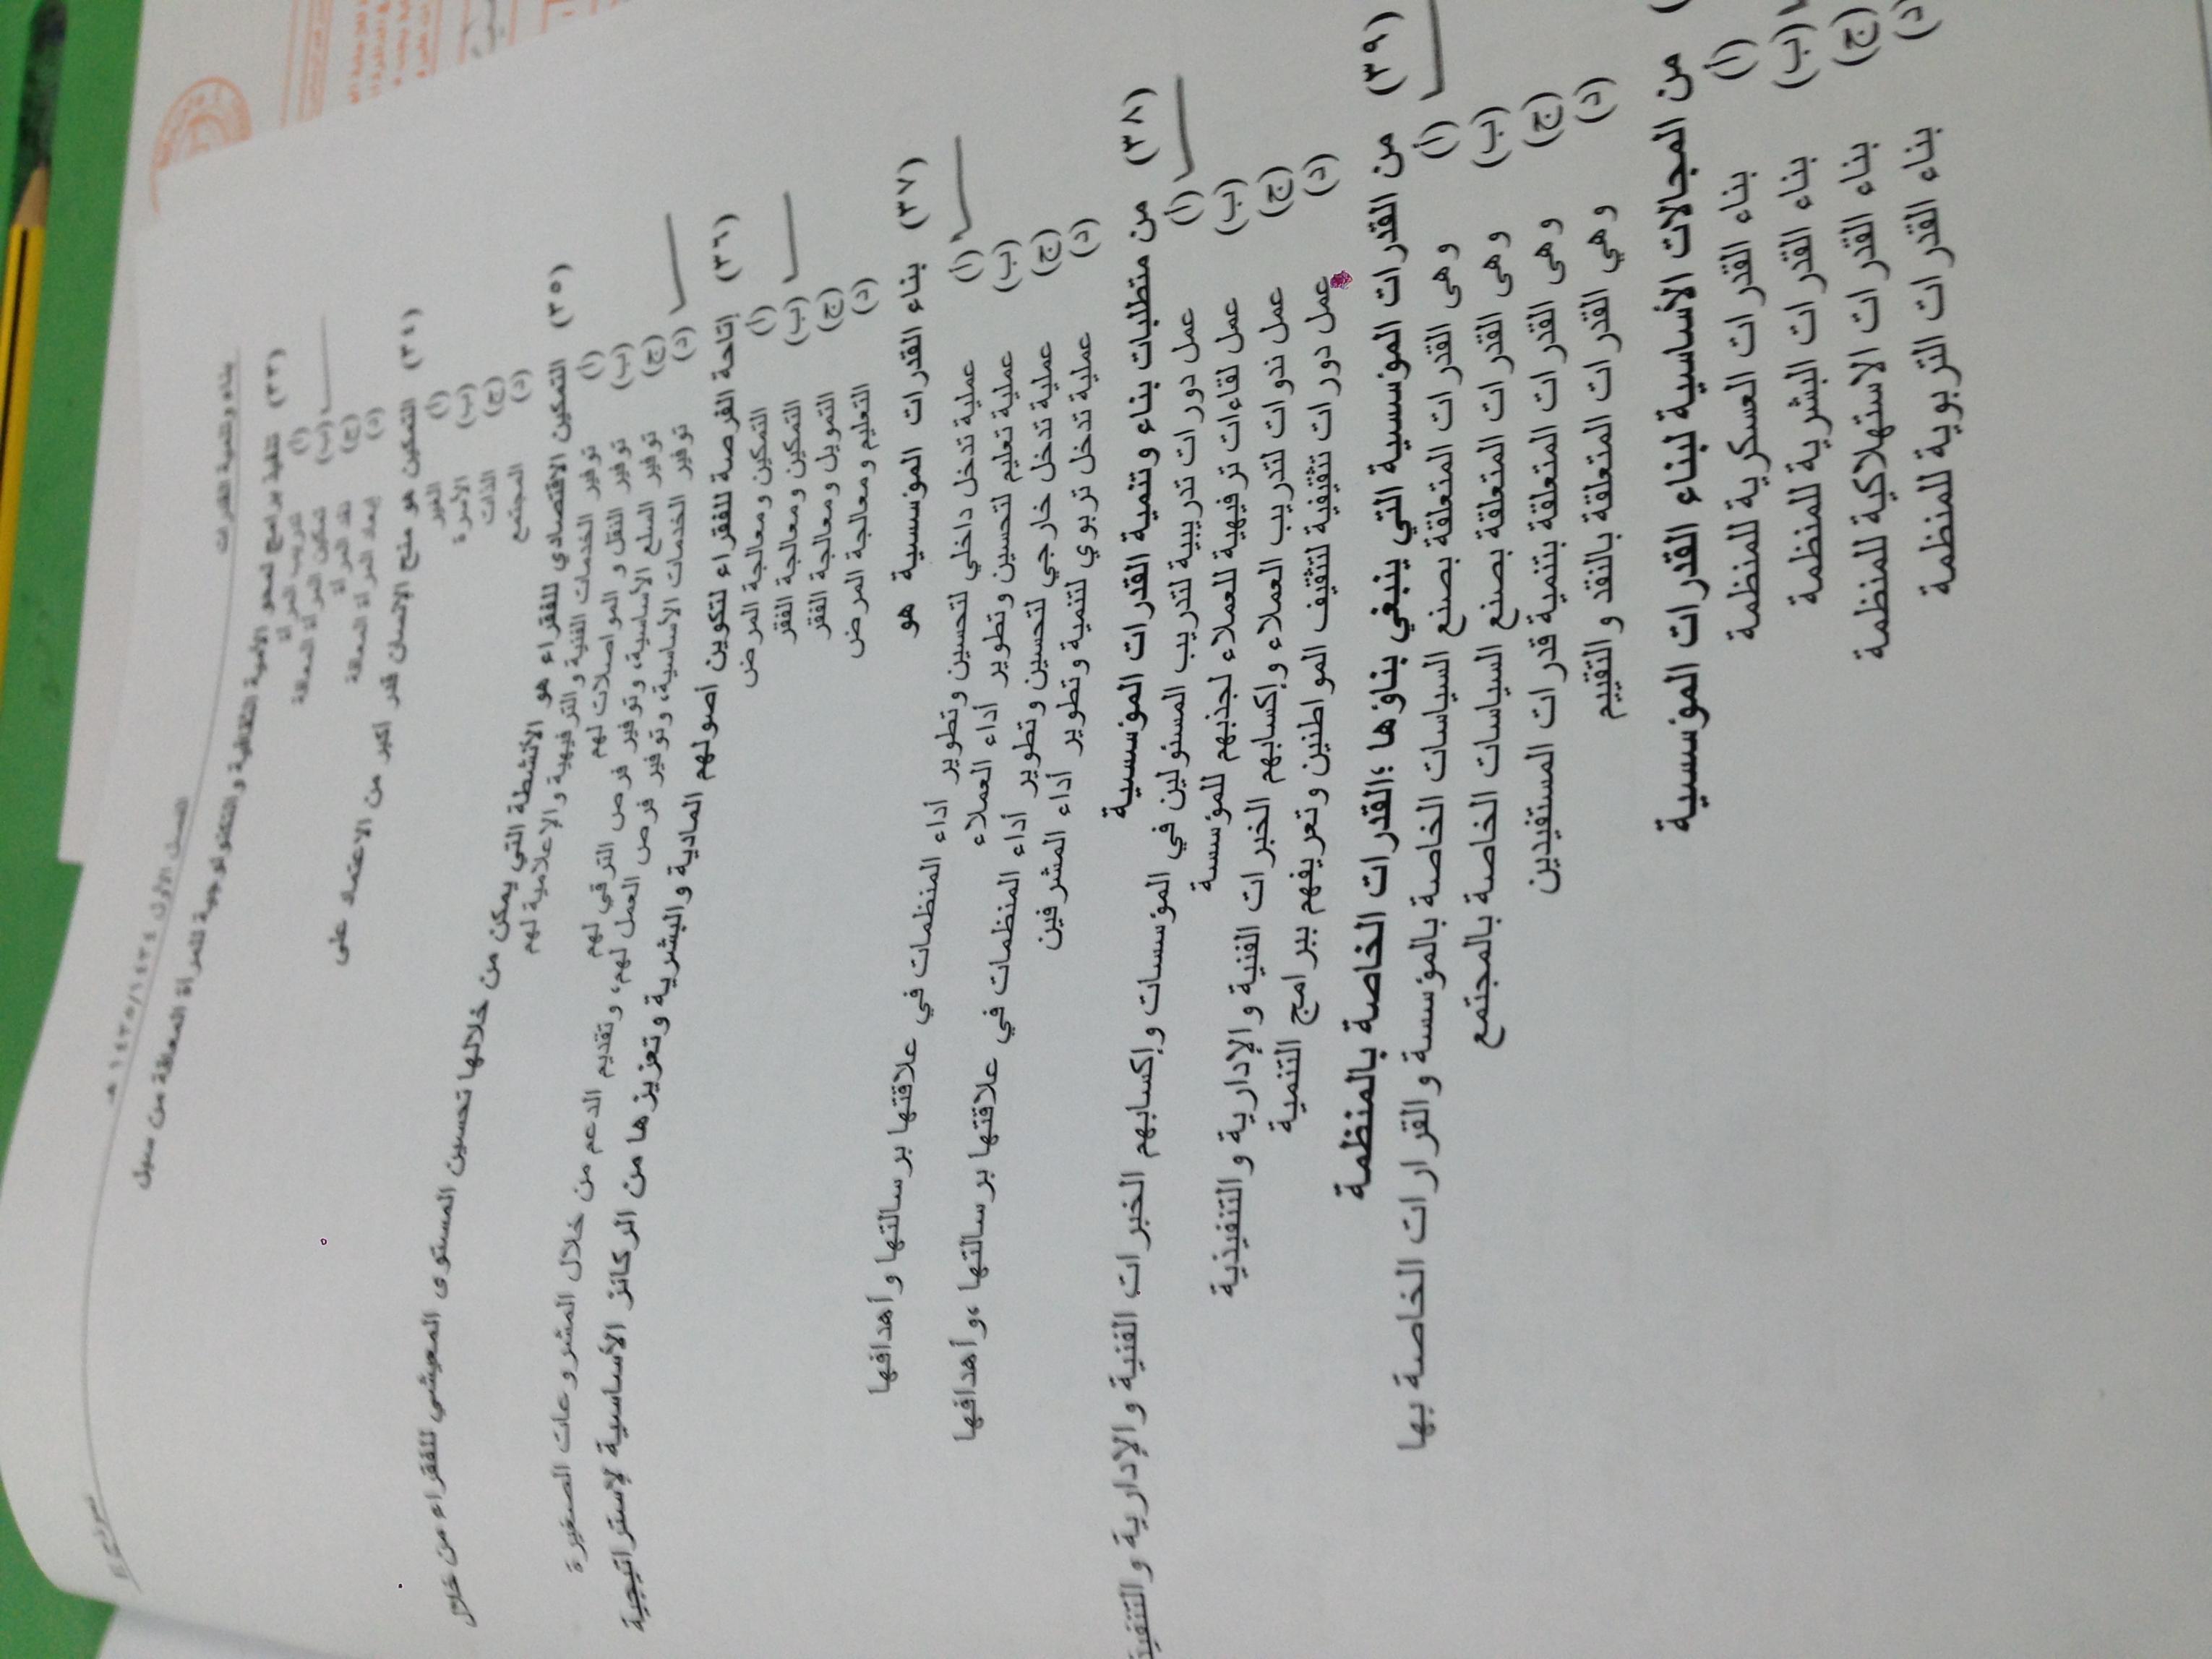 بناء وتنمية القدرات
الفصل الأول ١٤٣٤/١٤٣٥ هـ
(٣٣) تنفيذ برامج لمحو الأمية الثقافية والتكنولوجية للمرأة المعاقة من سبل
(أ) تدريب المرأة
(ب) تمكين المرأة المعاقة
(ج) نقد المرأة
(د) إبعاد المرأة المعاقة
(٣٤) التمكين هو منح الإنسان قدر أكبر من الاعتماد على
(أ) الغير
(ب) الأسرة
(ج) الذات
(د) المجتمع
(٣٥) التمكين الاقتصادي للفقراء هو الأنشطة التي يمكن من خلالها تحسين المستوى المعيشي للفقراء من خلال
(أ) توفير الخدمات الفنية والترفيهية والإعلامية لهم
(ب) توفير النقل و المواصلات لهم
(ج) توفير السلع الأساسية، وتوفير فرص الترقي لهم
(د) توفير الخدمات الأساسية، وتوفير فرص العمل لهم، وتقديم الدعم من خلال المشروعات الصغيرة
(٣٦) إتاحة الفرصة للفقراء لتكوين أصولهم المادية والبشرية وتعزيزها من الركائز الأساسية لإستراتيجية
(أ) التمكين ومعالجة المرض
(ب) التمكين ومعالجة الفقر
(ج) التمويل ومعالجة الفقر
(د) التعليم ومعالجة المرض
(٣٧) بناء القدرات المؤسسية هو
(أ) عملية تدخل داخلي لتحسين وتطوير أداء المنظمات في علاقتها برسالتها وأهدافها
(ب) عملية تعليم لتحسين وتطوير أداء العملاء
(ج) عملية تدخل خارجي لتحسين وتطوير أداء المنظمات في علاقتها برسالتها ،وأهدافها
(د) عملية تدخل تربوي لتنمية وتطوير أداء المشرفين
(٣٨) من متطلبات بناء وتنمية القدرات المؤسسية
(أ) عمل دورات تدريبية لتدريب المسئولين في المؤسسات وإكسابهم الخبرات الفنية والإدارية والتنفيذية
(ب) عمل لقاءات ترفيهية للعملاء لجذبهم للمؤسسة
(ج) عمل ندوات لتدريب العملاء وإكسابهم الخبرات الفنية والإدارية والتنفيذية
(د) عمل دورات تثقيفية لتثقيف المواطنين وتعريفهم ببرامج التنمية
(٣٩) من القدرات المؤسسية التي ينبغي بناؤها ؛القدرات الخاصة بالمنظمة
(أ) وهى القدرات المتعلقة بصنع السياسات الخاصة بالمؤسسة والقرارات الخاصة بها
(ب) وهى القدرات المتعلقة بصنع السياسات الخاصة بالمجتمع
(ج) وهى القدرات المتعلقة بتنمية قدرات المستفيدين
(د) وهي القدرات المتعلقة بالنقد والتقييم
من المجالات الأساسية لبناء القدرات المؤسسية
(أ) بناء القدرات العسكرية للمنظمة
(ب) بناء القدرات البشرية للمنظمة
(ج) بناء القدرات الاستهلاكية للمنظمة
(د) بناء القدرات التربوية للمنظمة